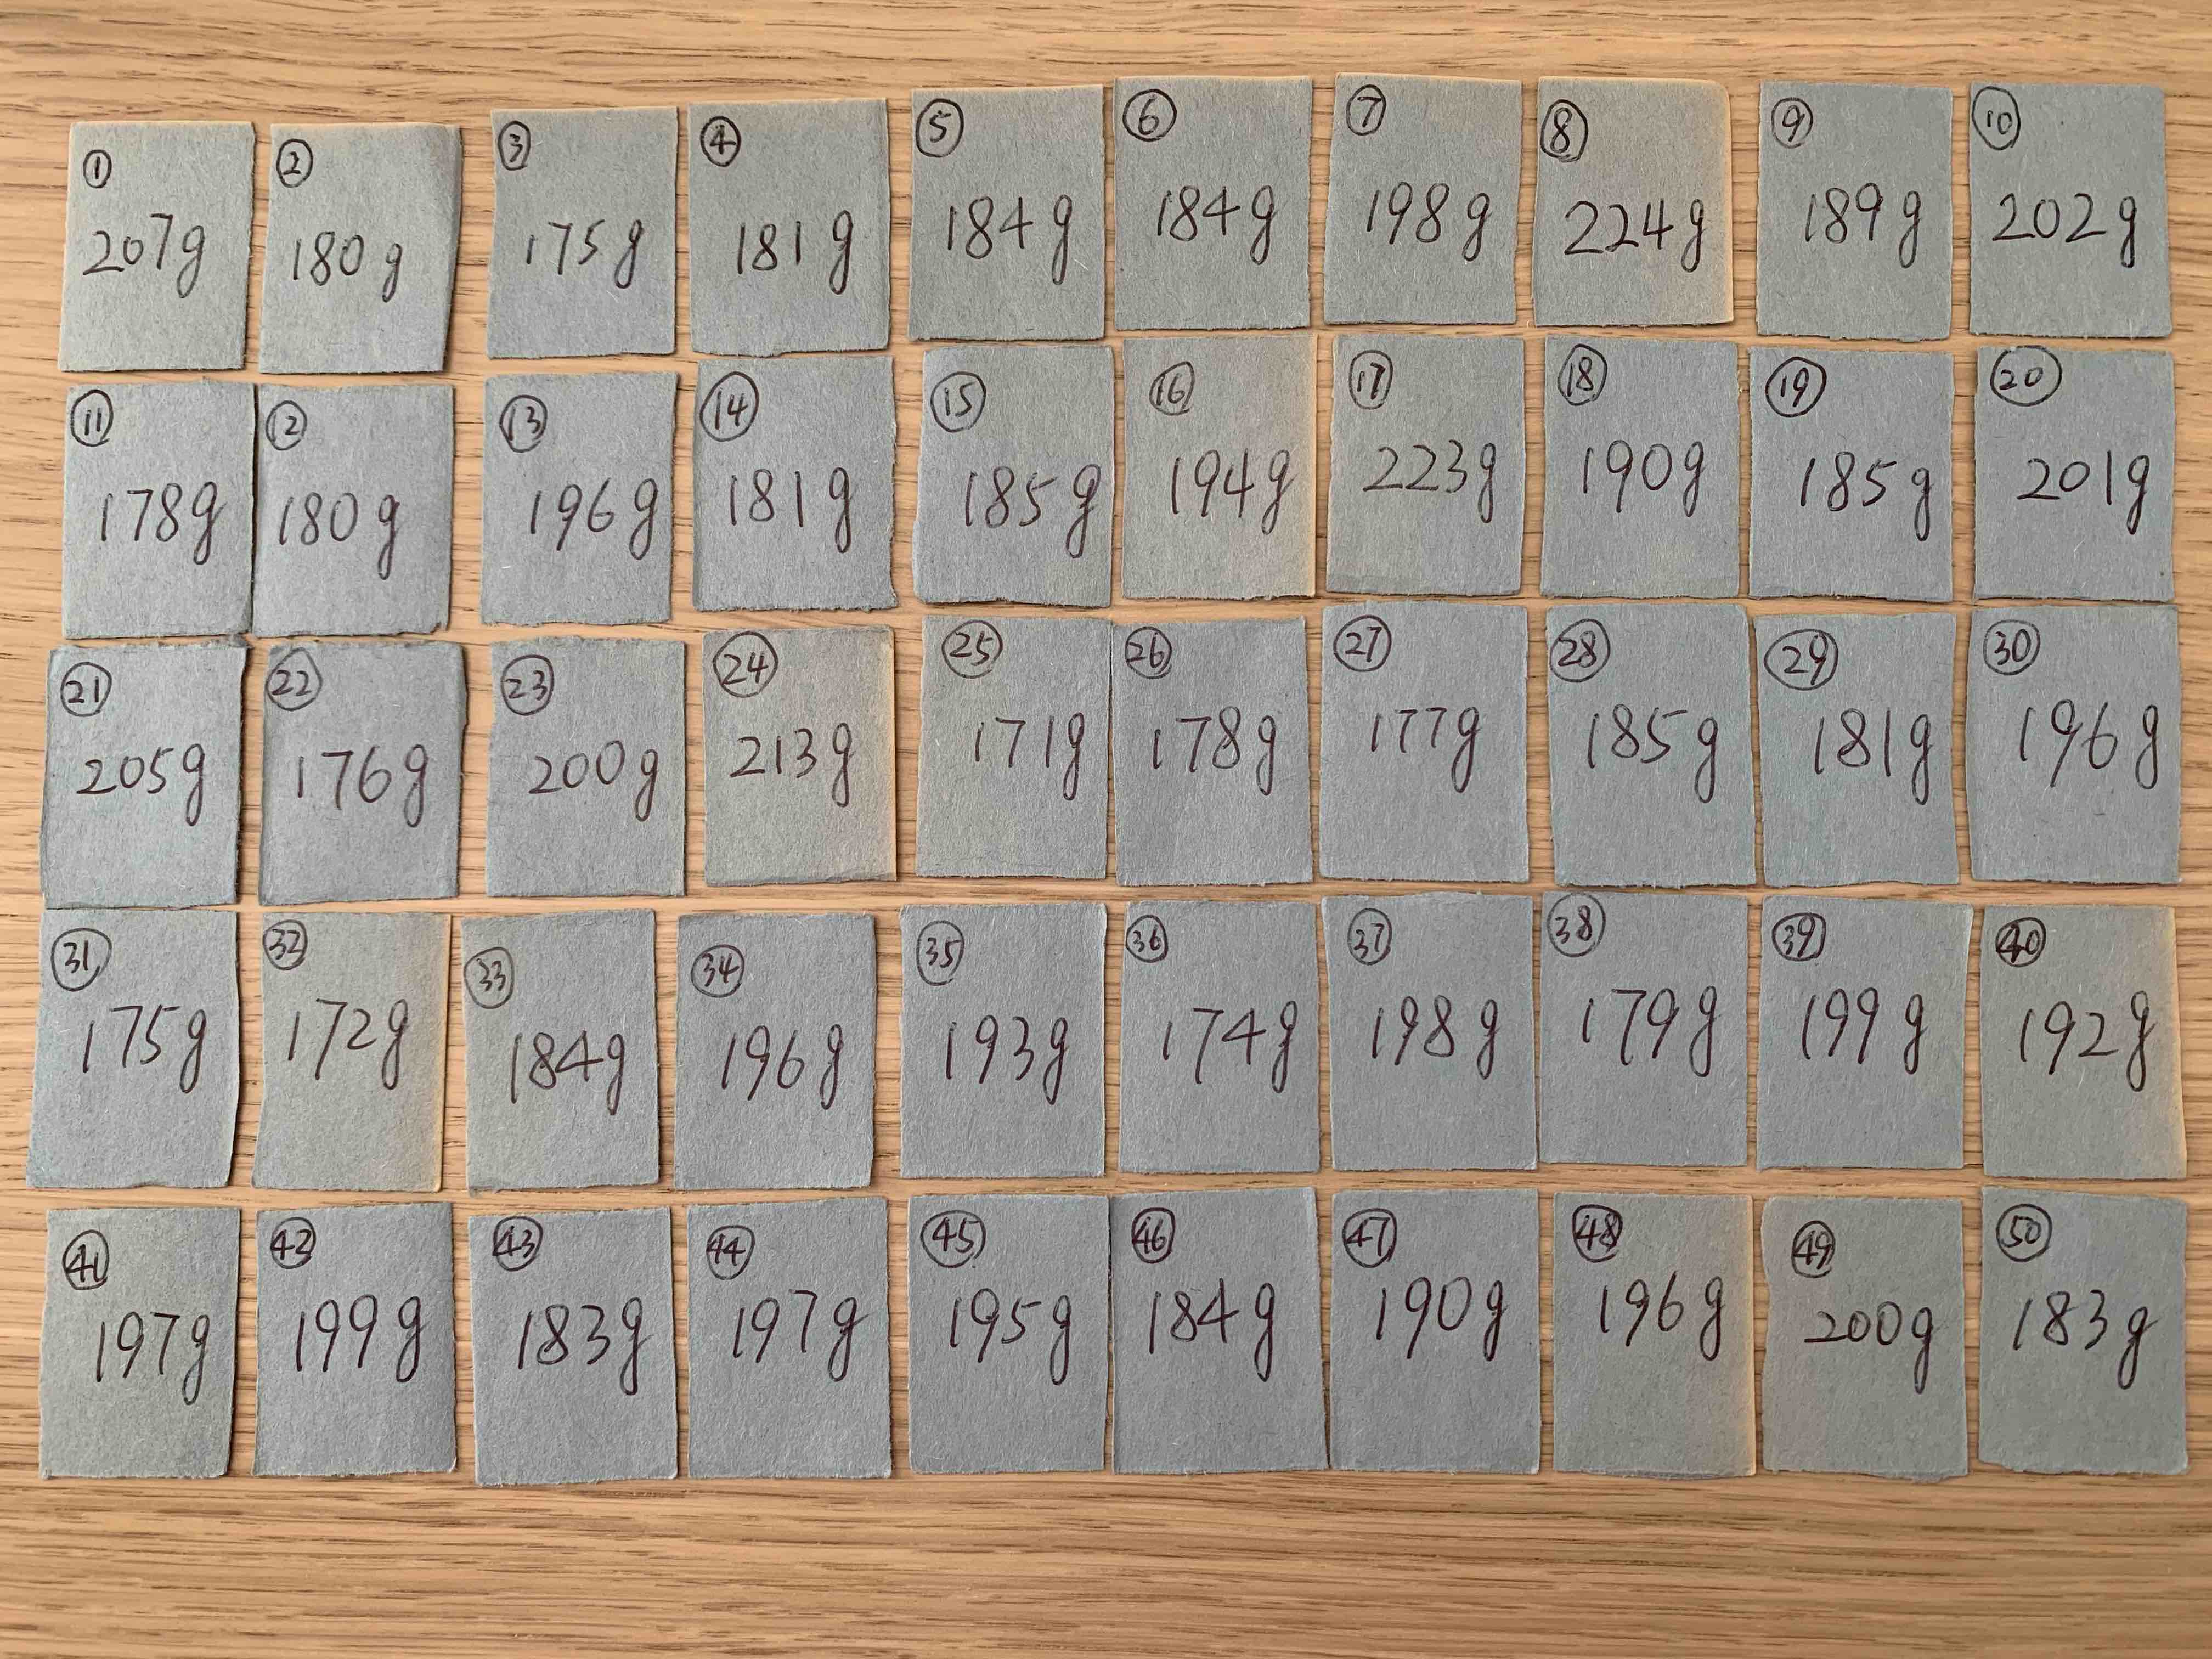 ① 207g
② 180g
③ 175g
④ 181g
⑤ 184g
⑥ 184g
⑦ 198g
⑧ 224g
⑨ 189g
⑩ 202g
⑪ 178g
⑫ 180g
⑬ 196g
⑭ 181g
⑮ 185g
⑯ 194g
⑰ 223g
⑱ 190g
⑲ 185g
⑳ 201g
㉑ 205g
㉒ 176g
㉓ 200g
㉔ 213g
㉕ 171g
㉖ 178g
㉗ 177g
㉘ 185g
㉙ 181g
㉚ 196g
㉛ 175g
㉜ 172g
㉝ 184g
㉞ 196g
㉟ 193g
㊱ 174g
㊲ 198g
㊳ 179g
㊴ 199g
㊵ 192g
㊶ 197g
㊷ 199g
㊸ 183g
㊹ 197g
㊺ 195g
㊻ 184g
㊼ 190g
㊽ 196g
㊾ 200g
㊿ 183g